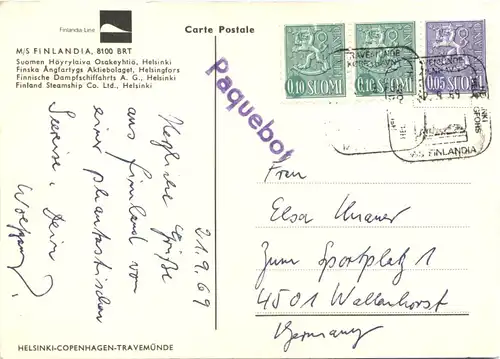 Finlandia Line
M/S FINLANDIA, 8100 BRT
Suomen Höyrylaiva Osakeyhtiö, Helsinki
Finska Ångfartygs Aktiebolaget, Helsingfors
Finnische Dampfschiffahrts A. G., Helsinki
Finland Steamship Co. Ltd., Helsinki
Carte Postale
Paquebot
0.10 SUOMI
0.10 SUOMI
0.05 SUOMI
TRAVEMÜNDE
M/S FINLANDIA
21.9.69
Herzliche Grüße
aus Finnland von
einer phantastischen
Seereise. Dein
Wolfgang
Frau
Elsa
Zum Sportplatz 1
4501 Wallenhorst
Germany
HELSINKI-COPENHAGEN-TRAVEMÜNDE